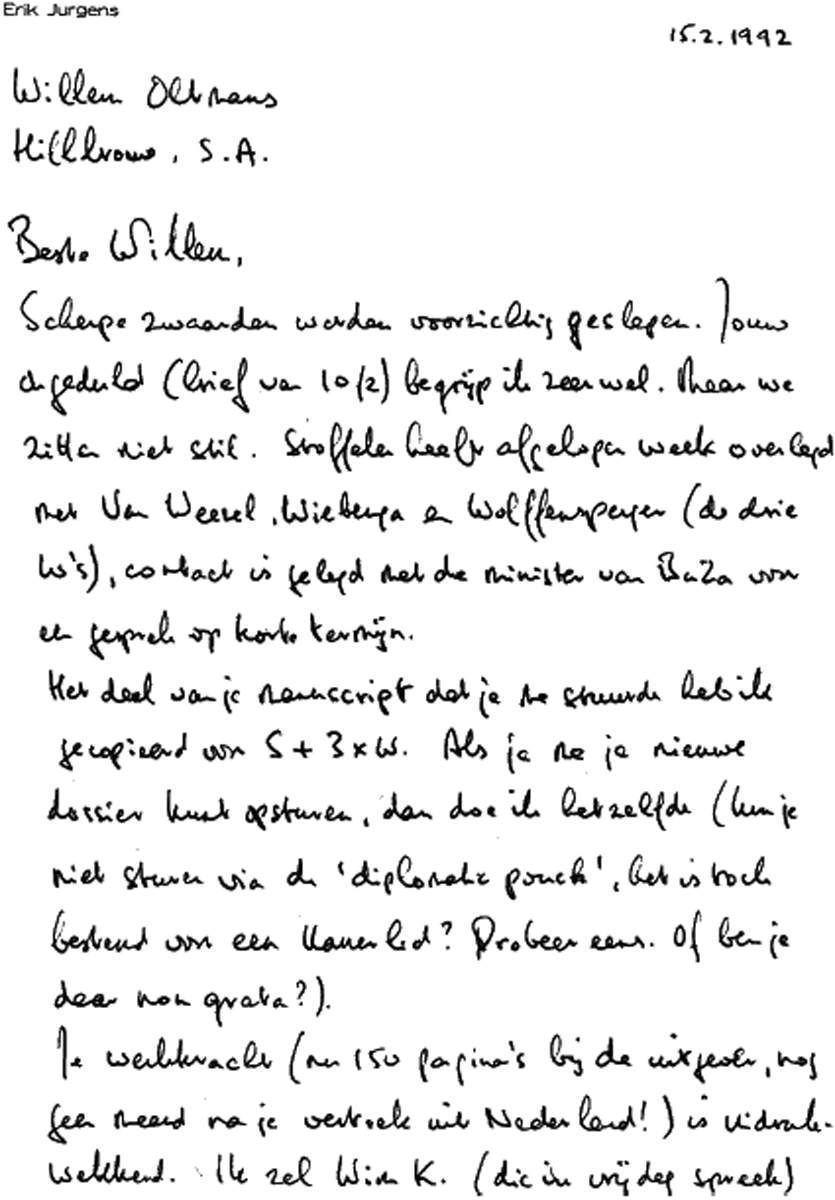 Erik Jurgens
15.2.1992
Willem Oltmans
Hillbrow, S.A.
Beste Willem,
Scherpe zwaarden worden voorzichtig geslepen. Jouw
ongeduld (brief van 10/2) begrijp ik zeer wel. Maar we
zitten niet stil. Stoffelen heeft afgelopen week overlegd
met Van Weezel, Wiebenga en Wolffensperger (de drie
W's), contact is gelegd met de minister van BuZa voor
een gesprek op korte termijn.
Het deel van je manuscript dat je me stuurde heb ik
gecopieerd voor S + 3 x W. Als je me je nieuwe
dossier kunt opsturen, dan doe ik hetzelfde (kun je
niet sturen via de 'diplomatic pouch', het is toch
bestemd voor een Kamerlid? Probeer eens. Of ben je
daar non grata?).
Je werkkracht (nu 150 pagina's bij de uitgever, nog
geen maand na je vertrek uit Nederland!) is indruk-
wekkend. Ik zal Wim K. (die ik vrijdag spreek)